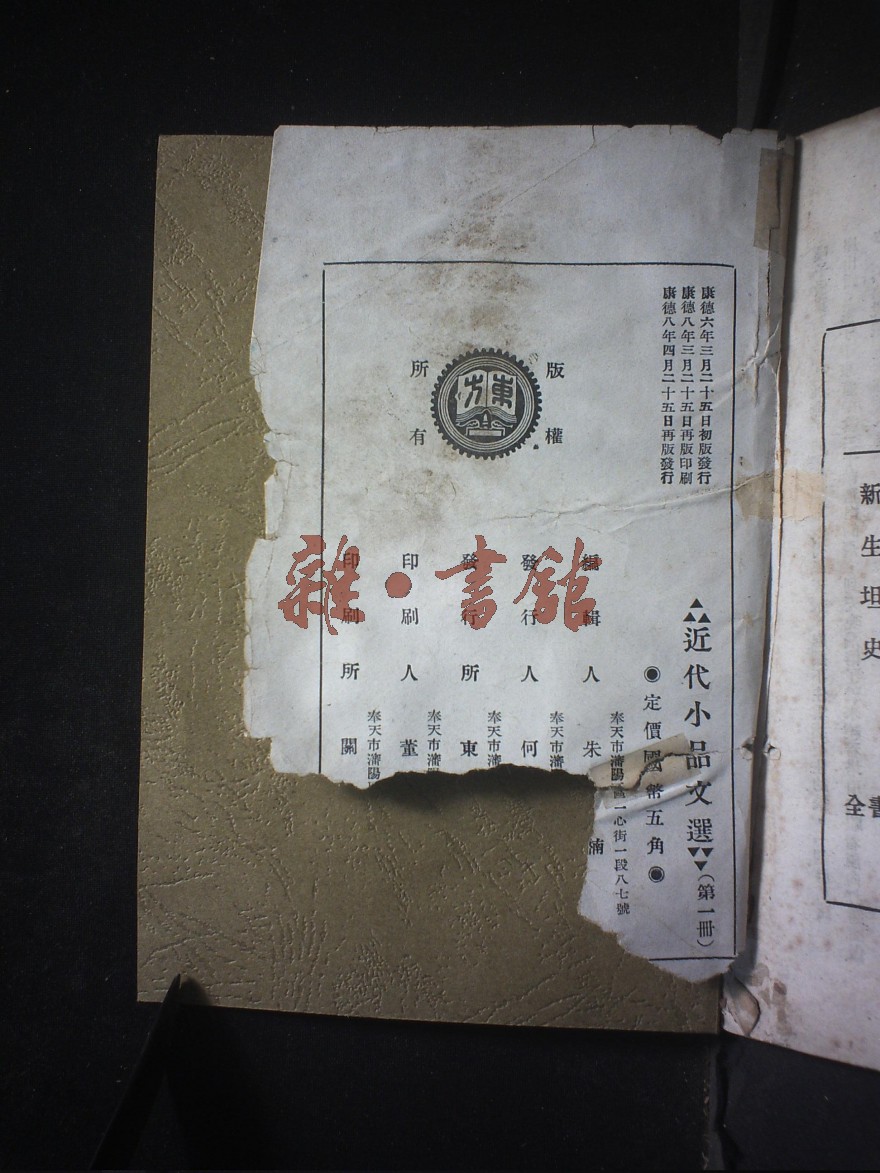 康德六年三月二十五日初版發行
康德八年三月二十五日再版印刷
康德八年四月二十五日再版發行
版權
所有
東方
近代小品文選(第一冊)
◉定價國幣五角◉
奉天市瀋陽區一心街一段八七號
編輯人 朱
湳
奉天市瀋
發行人 何
奉天市瀋
發行所 東
奉天市瀋陽
印刷人 董
奉天市瀋陽
印刷所 關
雜·書館
新生坦史
全書